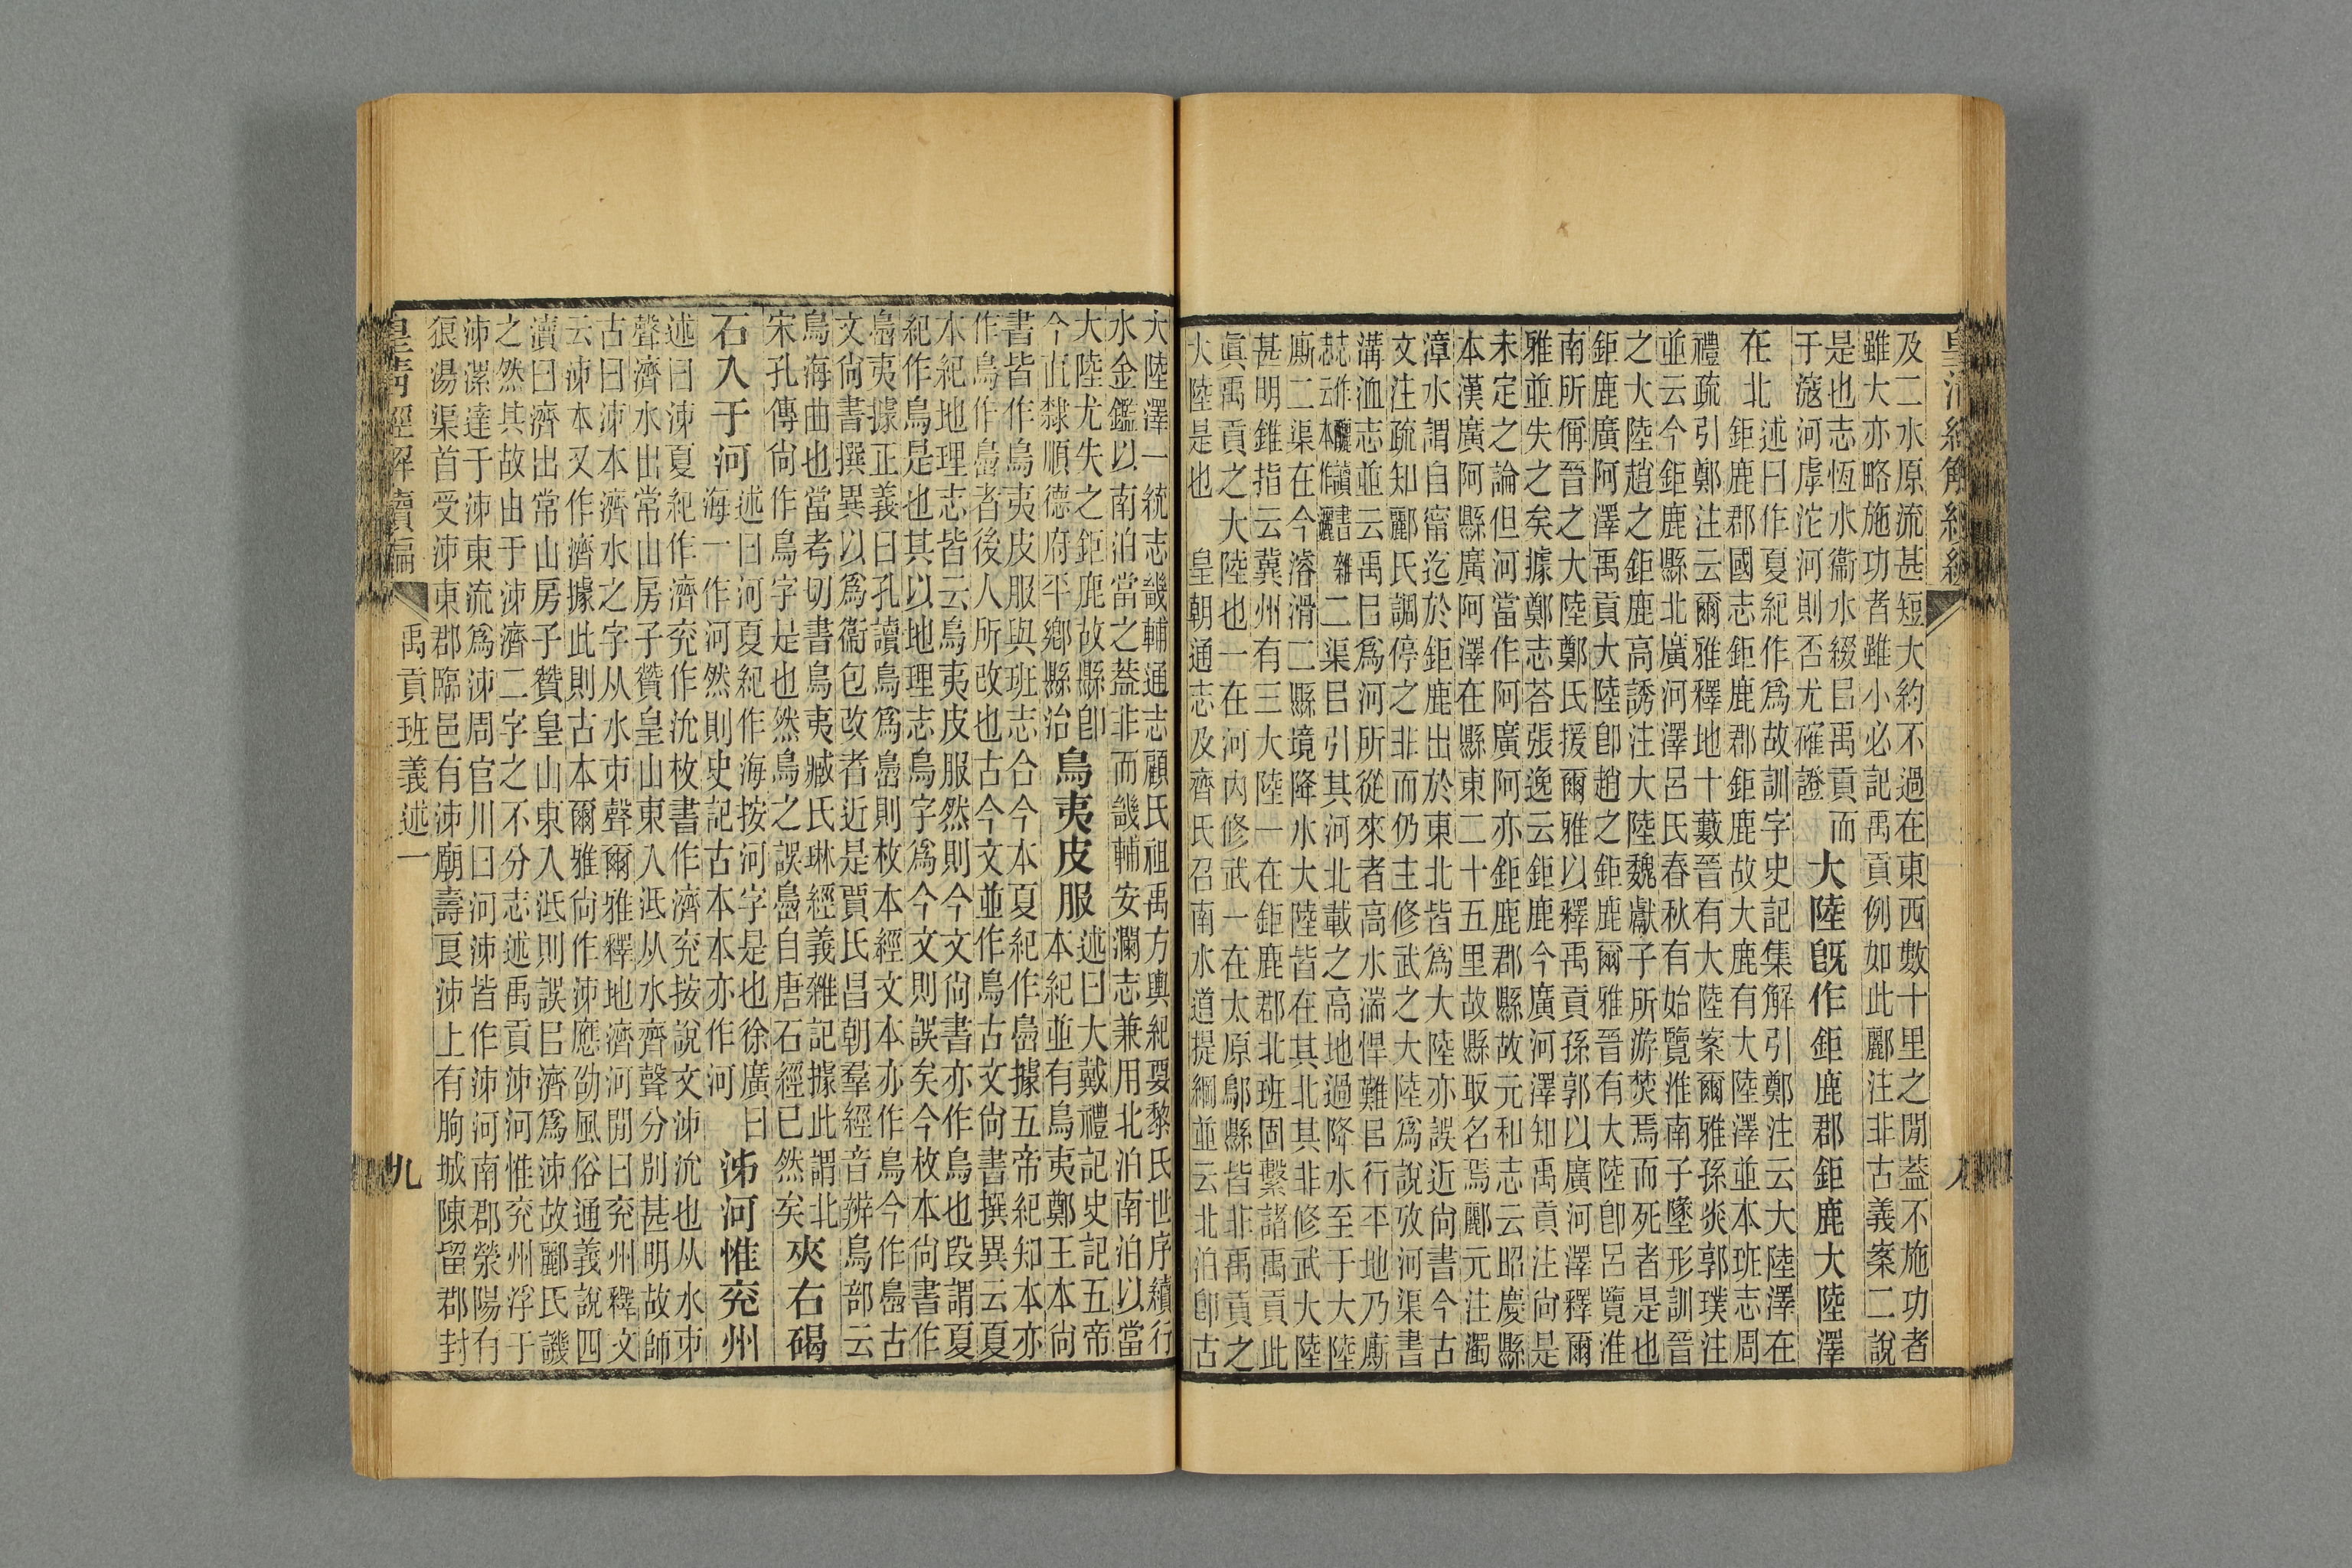 皇清經解續編
八
及二水原流甚短大約不過在東西數十里之閒蓋不施功者
雖大亦略施功者雖小必記禹貢例如此酈注非古義案二說
是也志恆水衞水綴㠯禹貢而
于滱河虖沱河則否尤確證
大陸旣作鉅鹿郡鉅鹿大陸澤
在北
述曰作夏紀作爲故訓字史記集解引鄭注云大陸澤在
鉅鹿郡國志鉅鹿郡鉅鹿故大鹿有大陸澤並本班志周
禮疏引鄭注云爾雅釋地十藪晉有大陸案爾雅孫炎郭璞注
並云今鉅鹿縣北廣河澤呂氏春秋有始覽淮南子墜形訓晉
之大陸趙之鉅鹿高誘注大陸魏獻子所游焚焉而死者是也
鉅鹿廣阿澤禹貢大陸卽趙之鉅鹿爾雅晉有大陸卽呂覽淮
南所偁晉之大陸鄭氏援爾雅以釋禹貢孫郭以廣河澤釋爾
雅並失之矣據鄭志荅張逸云鉅鹿今廣河澤知禹貢注尙是
未定之論但河當作阿廣阿亦鉅鹿郡縣故元和志云昭慶縣
本漢廣阿縣廣阿澤在縣東二十五里故縣取名焉酈元注濁
漳水謂自甯迄於鉅鹿出於東北皆爲大陸亦誤近尙書今古
文注疏知酈氏調停之非而仍主修武之大陸爲說攷河渠書
溝洫志並云禹㠯爲河所從來者高水湍悍難㠯行平地乃廝
二渠㠯引其河北載之高地過降水至于大陸
廝二渠在今濬滑二縣境降水大陸皆在其北其非修武大陸
甚明錐指云冀州有三大陸一在鉅鹿郡北班固繫諸禹貢此
眞禹貢之大陸也一在河內修武一在太原鄔縣皆非禹貢之
大陸是也 皇朝通志及齊氏召南水道提綱並云北泊卽古
大陸澤一統志畿輔通志顧氏祖禹方輿紀要黎氏世序續行
水金鑑以南泊當之蓋非而畿輔安瀾志兼用北泊南泊以當
大陸尤失之鉅鹿故縣卽
今直隸順德府平鄉縣治
鳥夷皮服
述曰大戴禮記史記五帝
本紀並有鳥夷鄭王本尙
書皆作鳥夷皮服與班志合今本夏紀作嶌據五帝紀知本亦
作鳥作嶌者後人所改也古今文並作鳥古文尙書撰異云夏
本紀地理志皆云鳥夷皮服然則今文尙書亦作鳥也段謂夏
紀作鳥是也其以地理志鳥字爲今文則誤矣今枚本尙書作
嶌夷據正義曰孔讀鳥爲嶌則枚本經文本亦作鳥今作嶌古
文尙書撰異以爲衞包改者近是賈氏昌朝羣經音辨鳥部云
鳥海曲也當考切書鳥夷臧氏琳經義雜記據此謂北
宋孔傳尙作鳥字是也然鳥之誤嶌自唐石經已然矣
夾右碣
石入于河
述曰河夏紀作海按河字是也徐廣曰
海一作河然則史記古本本亦作河
泲河惟兖州
述曰泲夏紀作濟兖作沇枚書作濟兖按說文泲沇也从水𠂔
聲濟水出常山房子贊皇山東入泜从水齊聲分別甚明故師
古曰泲本濟水之字从水𠂔聲爾雅釋地濟河閒曰兖州釋文
云泲本又作濟據此則古本爾雅尙作泲應劭風俗通義說四
瀆曰濟出常山房子贊皇山東入泜則誤㠯濟爲泲故酈氏譏
之然其故由于泲濟二字之不分志述禹貢泲河惟兖州浮于
泲漯達于泲東流爲泲周官川曰河泲皆作泲河南郡滎陽有
狼湯渠首受泲東郡臨邑有泲廟壽良泲上有朐城陳留郡封
皇清經解續編
禹貢班義述一
九